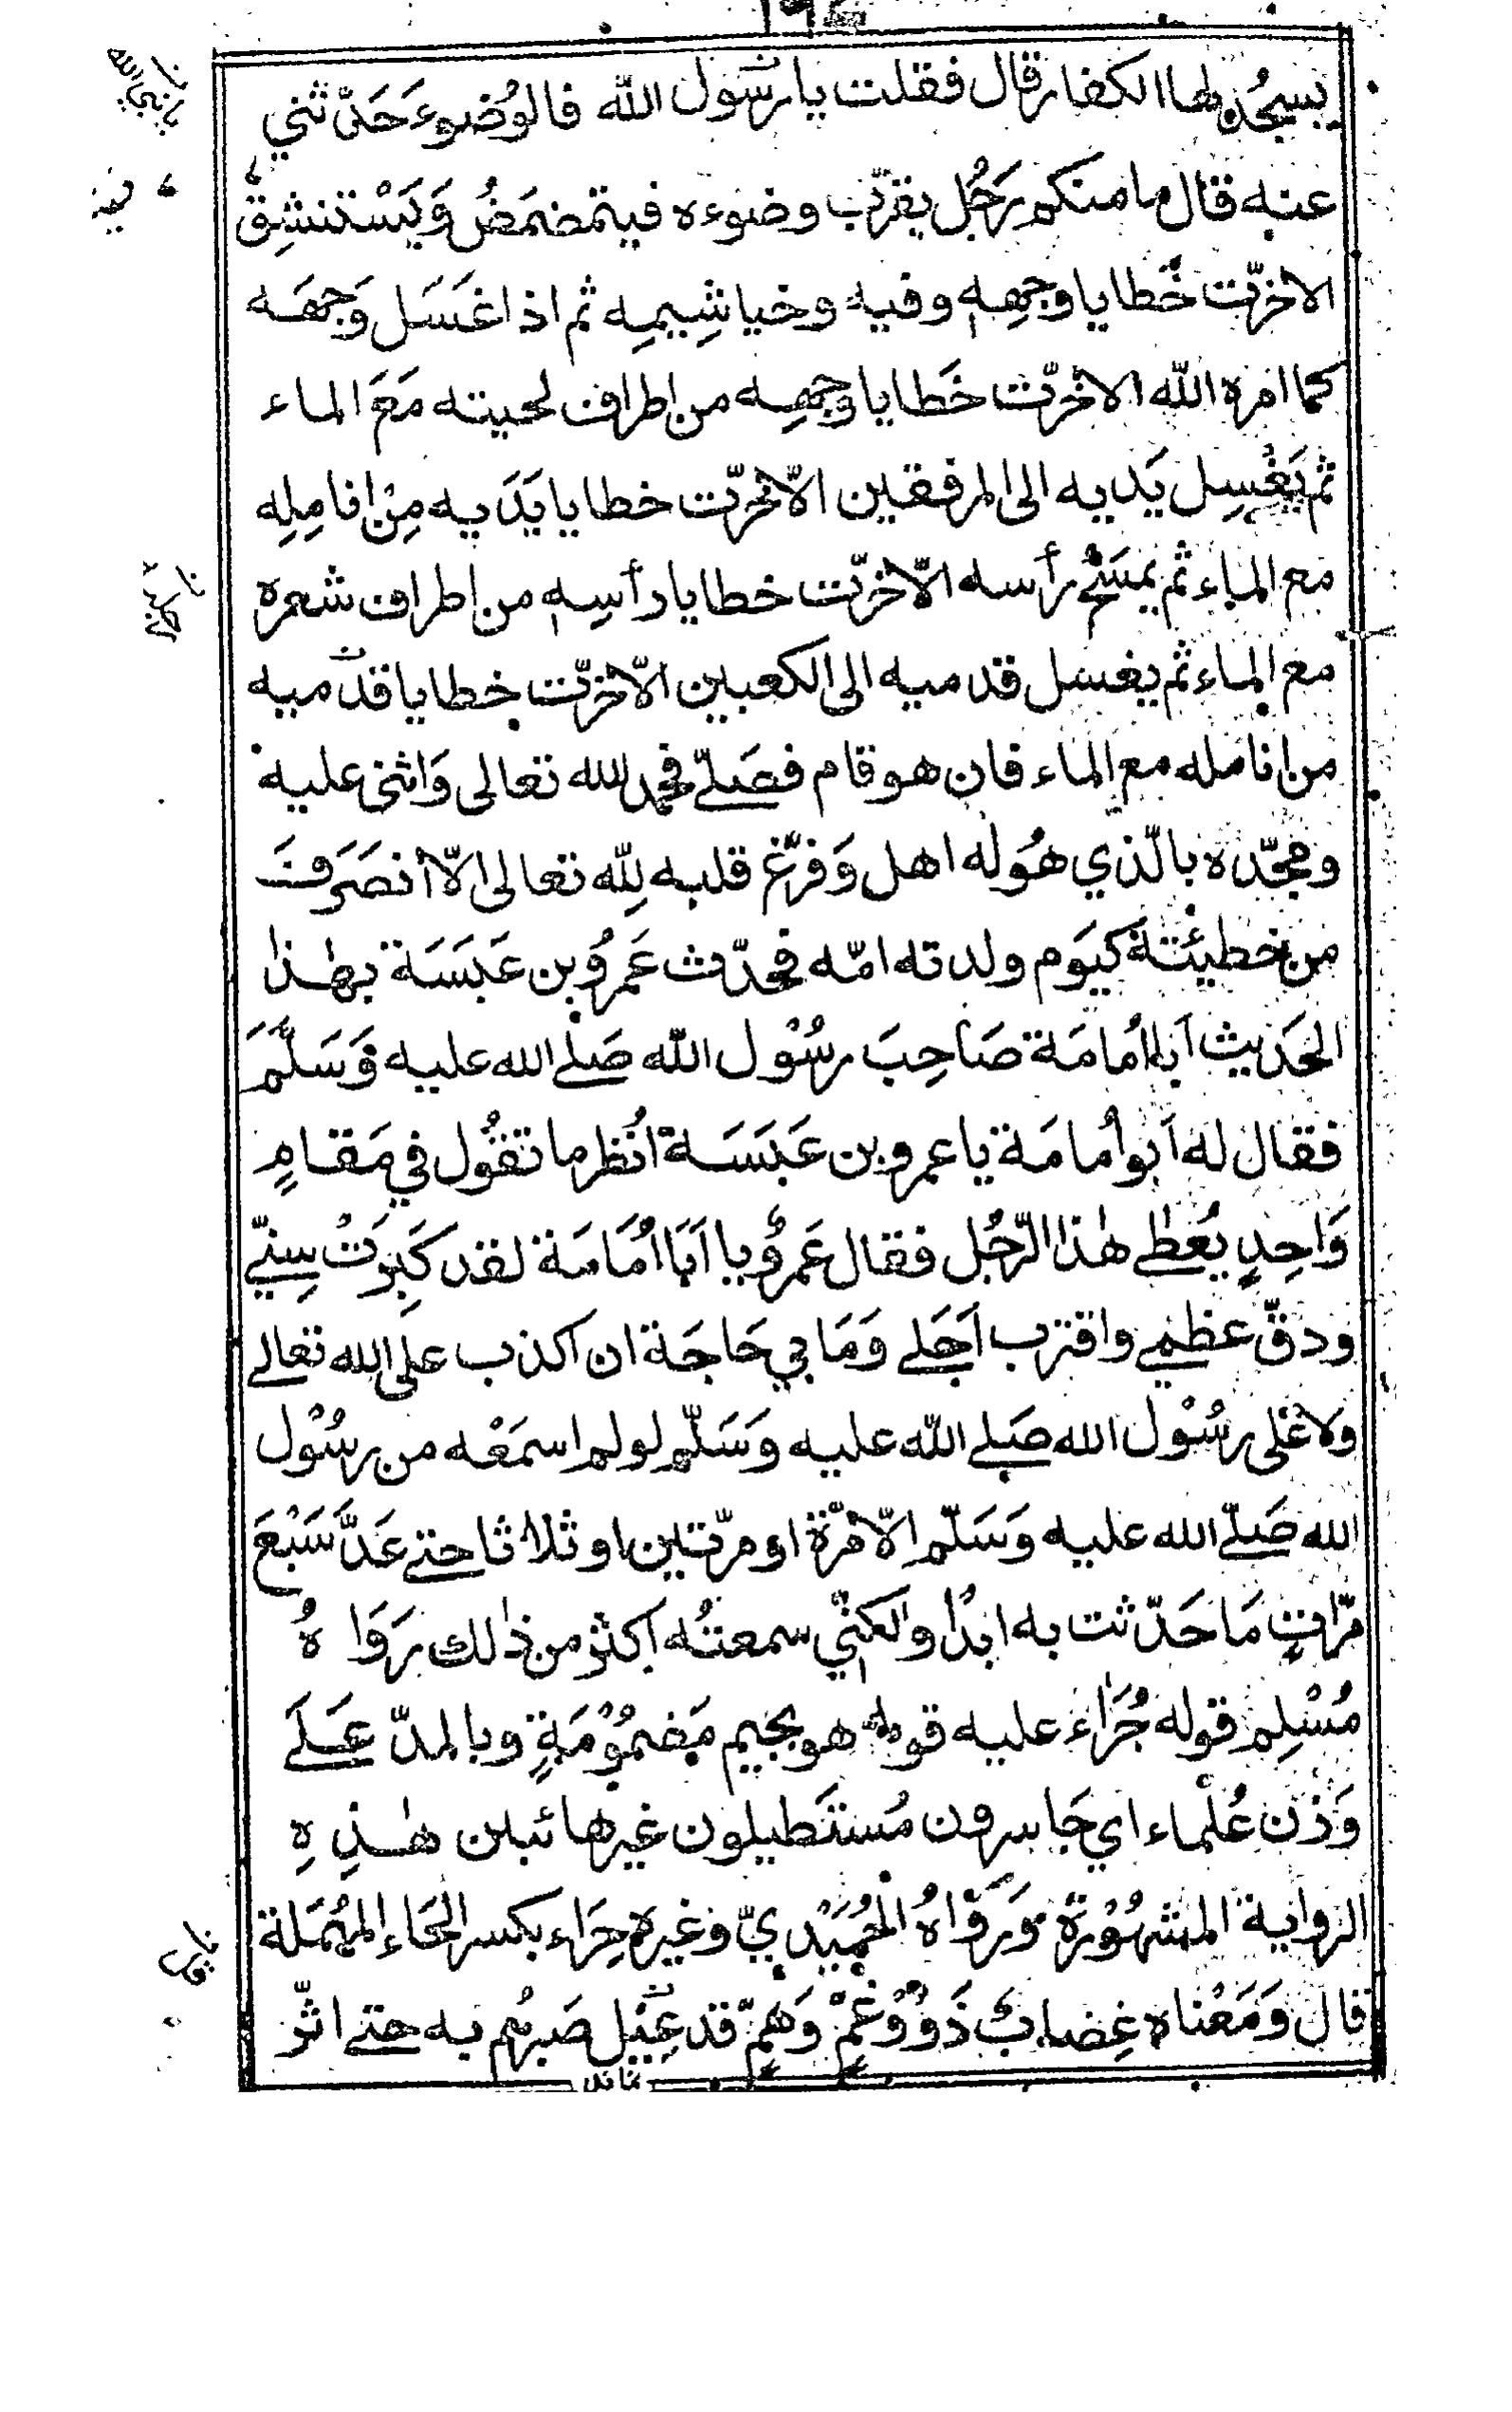 يسجُد لها الكفار قال فقلت يا رسول الله فالوُضوءَ حَدّثني
عنه قال ما منكم رَجُل يقرّب وضوءه فيتمضمَضُ وَيَسْتنشِق
الا خرّت خَطايا وجهِه وفيه وخياشِيمِه ثم اذا غَسَل وَجهَه
كما امره الله الا خرّت خَطايا وجهِه من اطراف لحيته مَعَ الماء
ثم يَغْسِل يَديه الى المرفقين الّا خرّت خطايا يَدَيه مِنْ اناملِه
مع الماء ثم يمسَحُ رأسه الّا خرّت خطايا رأسِه من اطراف شعره
مع الماء ثم يغسل قدميه الى الكعبين الّا خرّت خطايا قدميه
من انامله مع الماء فان هو قام فصَلّى فحمد لله تعالى وَاثنى عليه
ومجّده بالّذي هُوَ له اهل وَفرّغ قلبه لِلّه تعالى الّا أنصَرَفَ
من خطيئته كيَوم ولدته امّه فحدّث عَمرُو بن عَبَسَة بهٰذا
الحَديث اَبا اُمامَة صَاحِبَ رسُوْل الله صَلى الله عليه وَسَلَّمَ
فقال له اَبو اُمامَة يا عمرو بن عَبَسَة انُظر ما تقوُل في مَقامٍ
وَاحِدٍ يُعطٰى هٰذا الرّجُل فقال عَمرٌو يا اَبَا اُمَامَة لقد كَبِرَتْ سِنّي
ودقّ عظمي واقترب اَجَلي وَمَا بي حَاجَة ان اكذب على الله تعالى
ولا عَلى رسُوْل الله صَلى الله عليه وَسَلّم لو لم اسمَعْه من رسُوْل
الله صَلّى الله عليه وَسَلّم الّا مرّة او مرّتين او ثلاثا حتى عَدَّ سَبْعَ
مرّاتٍ مَا حَدّثت به ابدًا ولٰكنّي سمعتُه اَكثر من ذٰلك رَوَاهُ
مُسْلِم قوله جُرَاء عليه قومه هو بجيم مَضمُوْمَةٍ وبالمدّ عَلَى
وَزن عُلماء اي جَاسرون مُستَطيلون غير هائبين هٰذِهِ
الرواية المشهُوْرة وَرَوَاهُ الحُمَيْديّ وغيره حِرَاء بكسر الحَاء المهُمَلة
قال وَمَعْناه غِضاب ذَوُوْ غمّ وَهَمّ قد عِيْل صَبرُهم به حتى اثّر
يا نبي الله